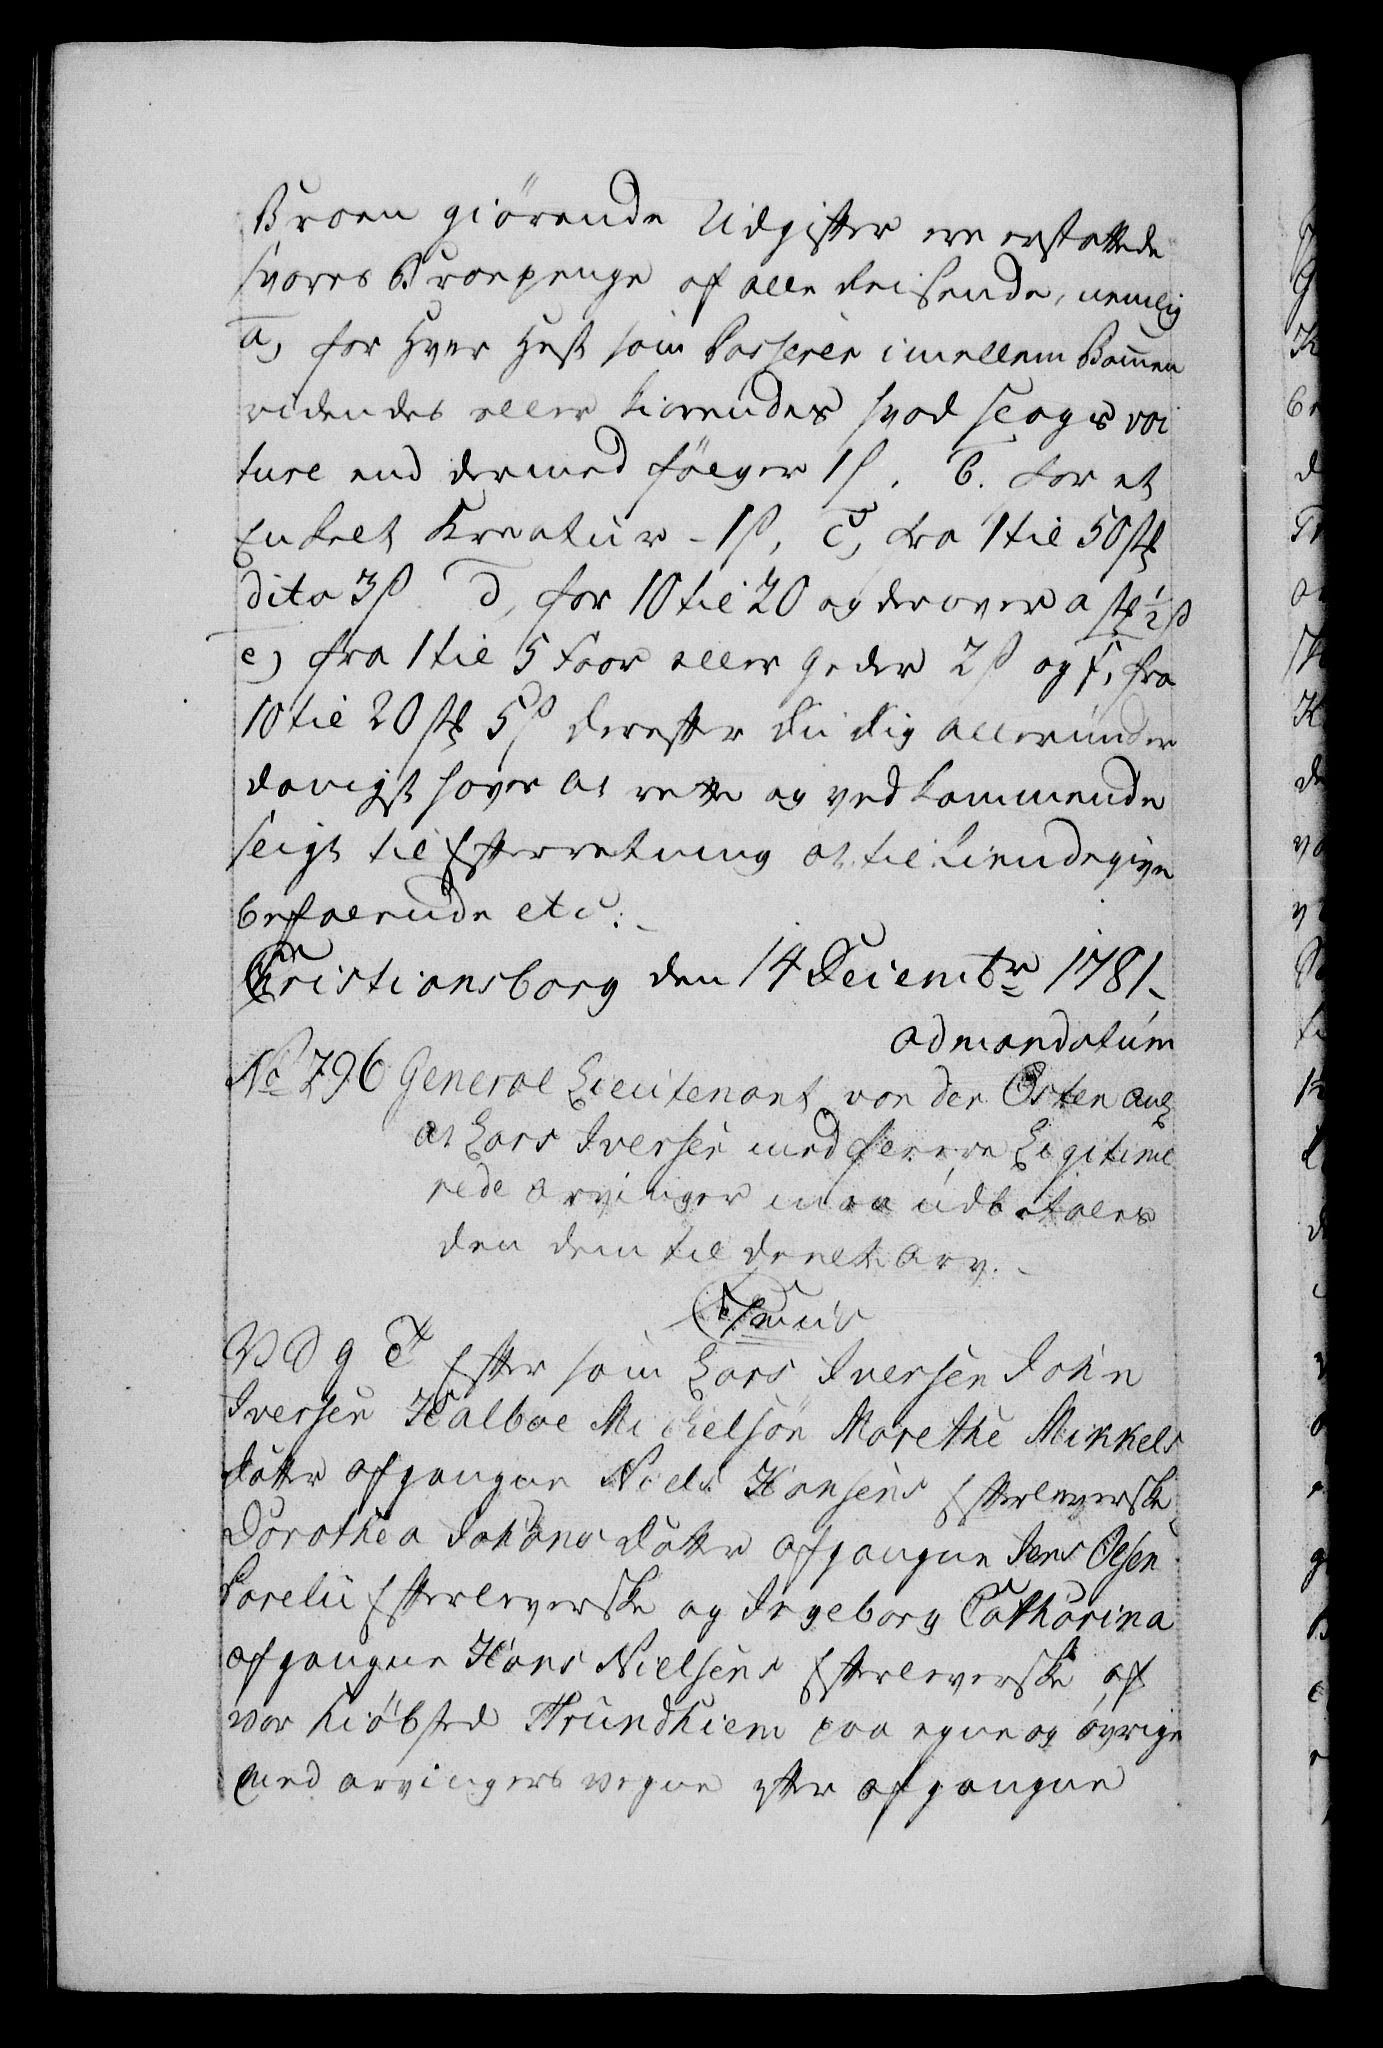 Broen giörende Udgifter ere erstattede
svares Broepenge af alle Reisende, nemlig
a, for Hver Hest som Passerer imellem Bommen
ridendes eller kiørendes hvad slags voi
ture end dermed fölger 1 ß, b. for et
Enkelt Kreatur - 1 ß, c, fra 1 til 50 stk
dito 3 ß d, for 10 til 20 og derover a stk ½ ß
e, fra 1 til 5 Faar eller Geder 2 ß og f, fra
10 til 20 stk 5 ß derefter du dig allerunder
danigst haver at rette og vedkommende
sligt til Efterretning at tilkiendegive
befalende etc:
Christiansborg den 14 Decembr 1781
ad mandatum
No 296 General Lieutenant von der Osten ang
at Lars Iversen med flerre Legitime
rede arvinger maa udbetales
den dem tildeelte arv.
C7mus
V S g T Efter som Lars Iversen John
Iversen Halboe Michelsön Marethe Mikkels
datter afgangne Niels Hansens Efterleverske
Dorothea Johansdatter afgangne Jens Olsen
Parelii Efterleverske og Ingeborg Catharina
afgangne Hans Nielsens Efterleverske af
vor kiöbsted Trundhiem paa egne og övrige
med arvingers vegne efter afgangne